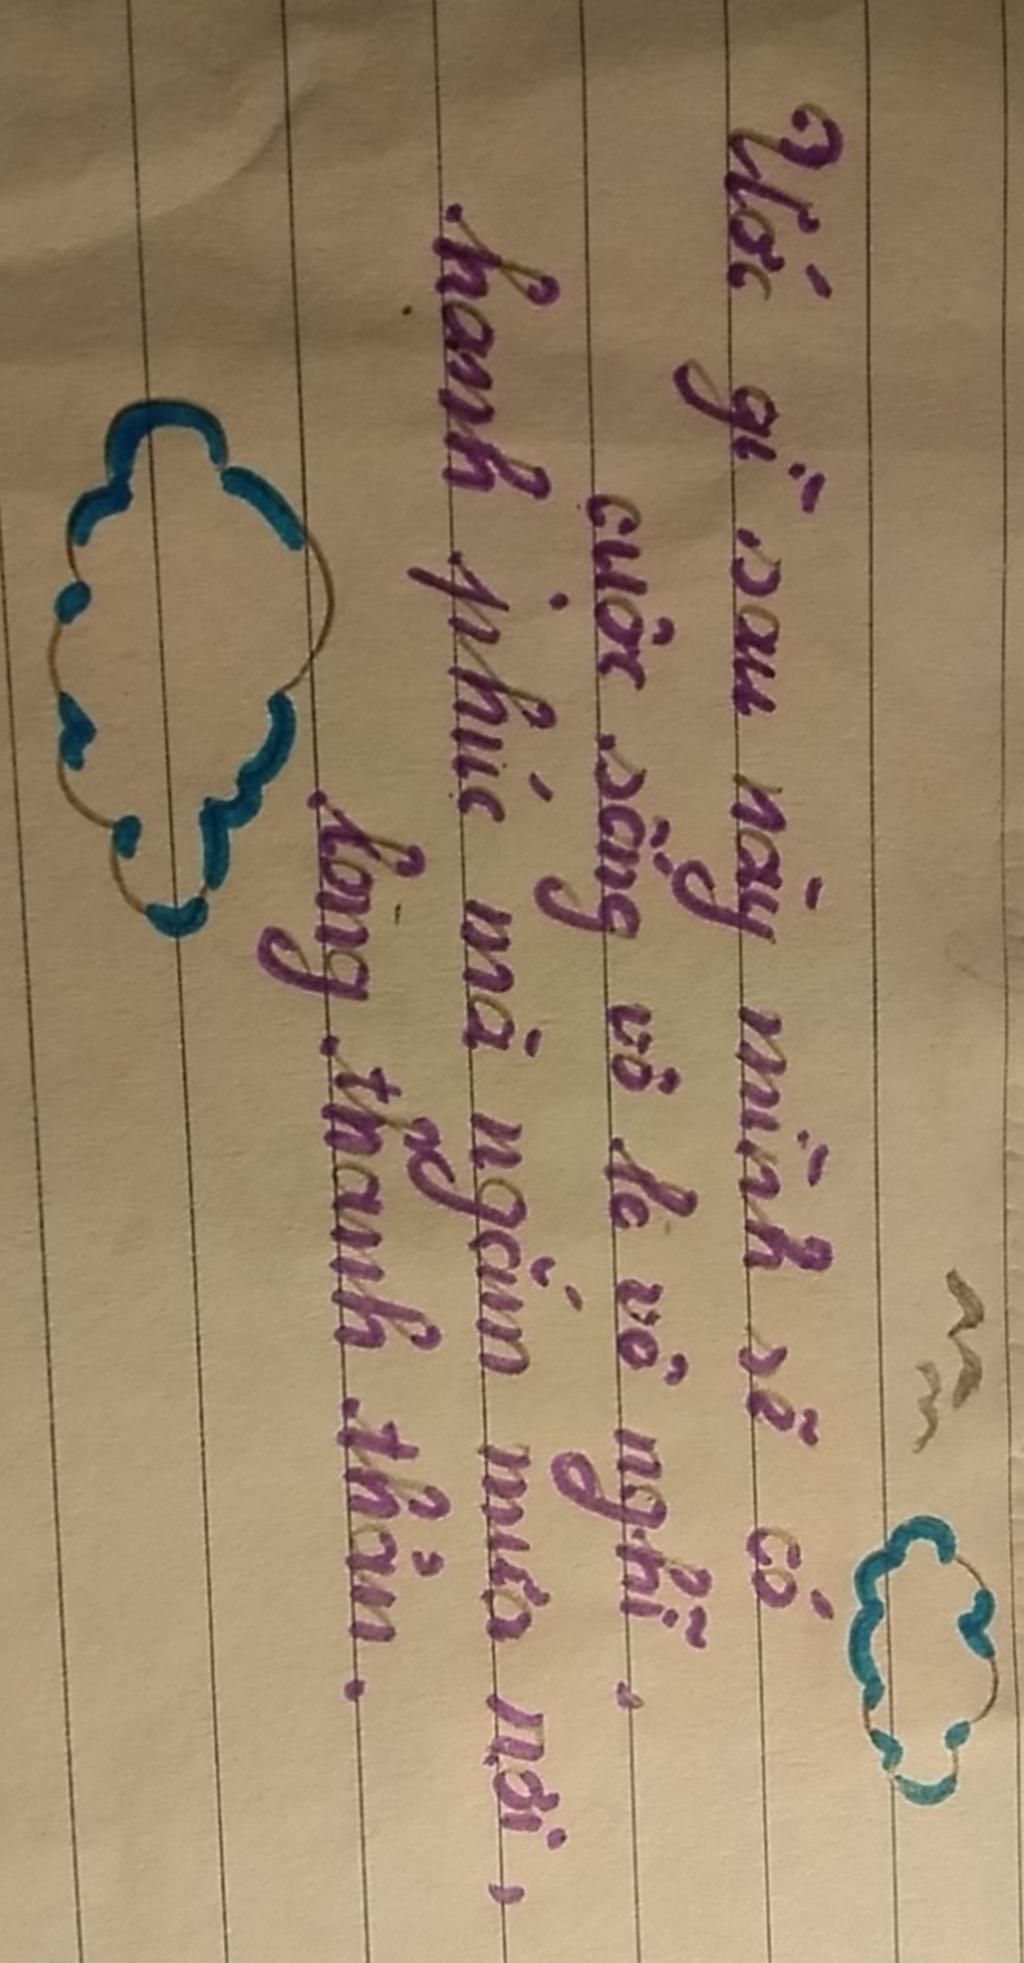 Ước gì sau này mình sẽ có
cuộc sống vô lo vô nghĩ,
hạnh phúc mà ngắm mưa rơi,
lòng thanh thản.